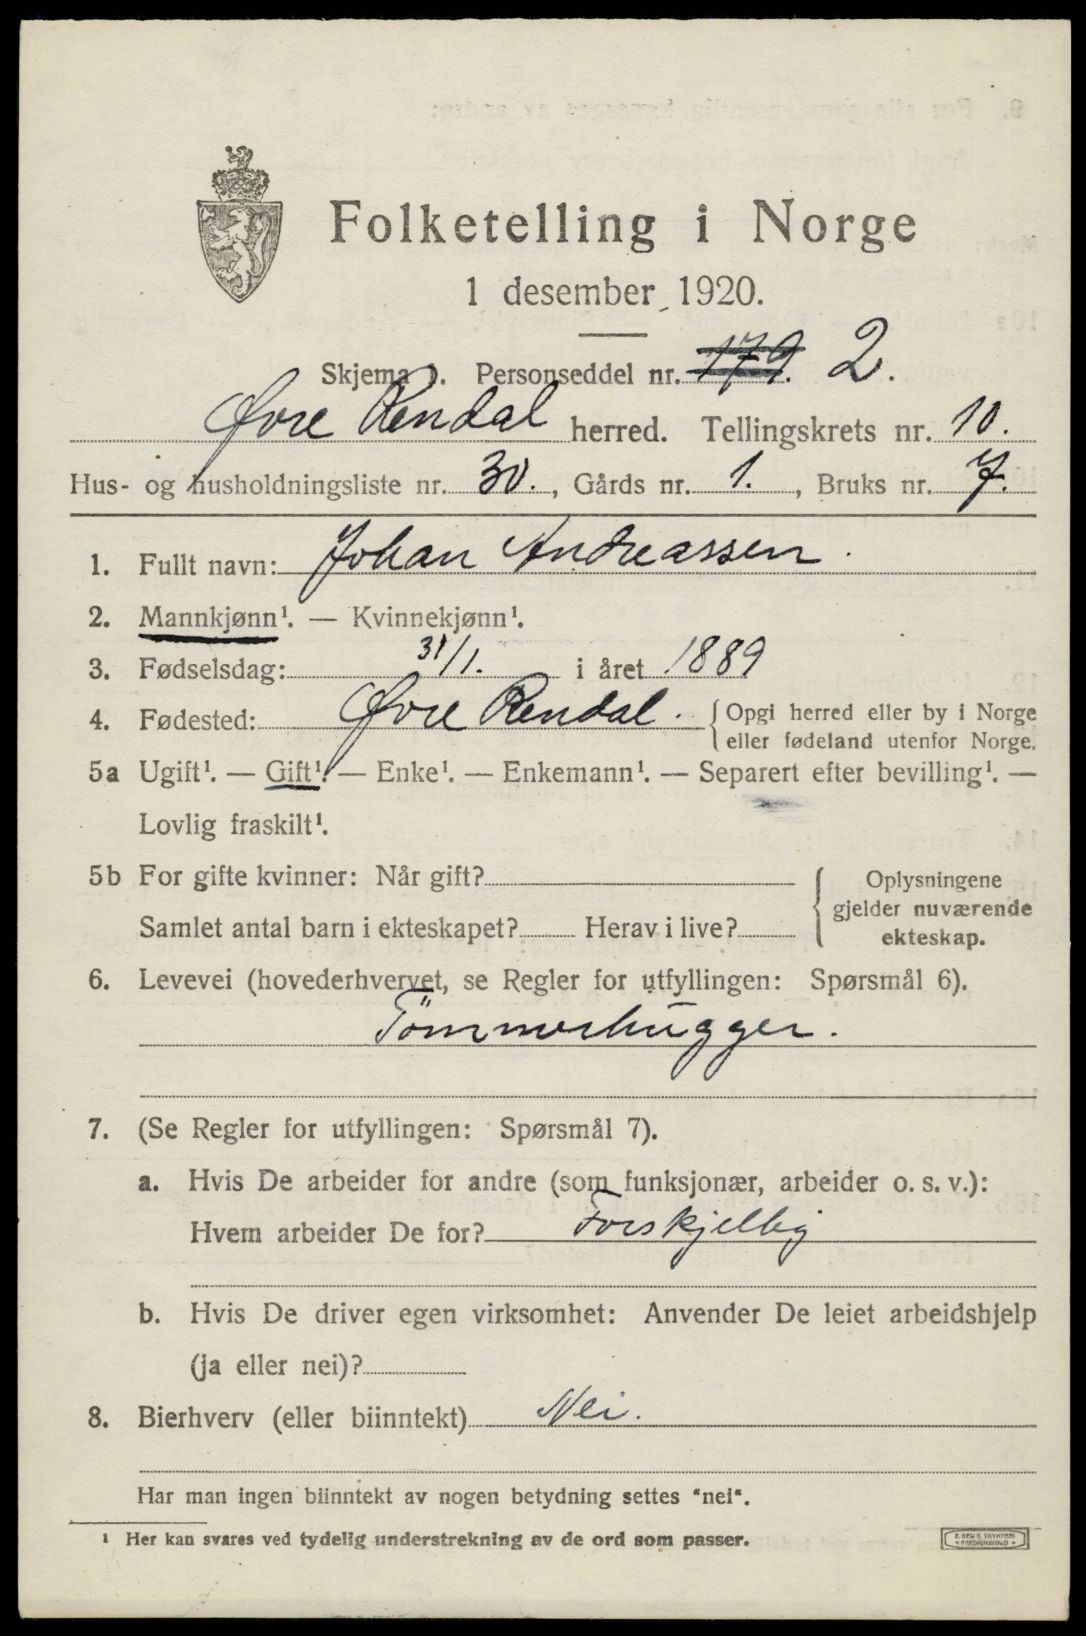 Folketelling i Norge
1 desember 1920.
Skjema 1. Personseddel nr. 179. 2.
Øvre Rendal herred. Tellingskrets nr. 10.
Hus- og husholdningsliste nr. 30., Gårds nr. 1., Bruks nr. 7.
1. Fullt navn: Johan Andreassen.
2. Mannkjønn¹. — Kvinnekjønn¹.
3. Fødselsdag: 31/1. i året 1889
4. Fødested: Øvre Rendal. {Opgi herred eller by i Norge
eller fødeland utenfor Norge.
5a Ugift¹. — Gift¹. — Enke¹. — Enkemann¹. — Separert efter bevilling¹. —
Lovlig fraskilt¹.
5b For gifte kvinner: Når gift?
Samlet antal barn i ekteskapet? Herav i live?
Oplysningene
gjelder nuværende
ekteskap.
6. Levevei (hovederhvervet, se Regler for utfyllingen: Spørsmål 6).
Tömmerhugger.
7. (Se Regler for utfyllingen: Spørsmål 7).
a. Hvis De arbeider for andre (som funksjonær, arbeider o. s. v.):
Hvem arbeider De for? Forskjellig
b. Hvis De driver egen virksomhet: Anvender De leiet arbeidshjelp
(ja eller nei)?
8. Bierhverv (eller biinntekt) Nei.
Har man ingen biinntekt av nogen betydning settes "nei".
¹ Her kan svares ved tydelig understrekning av de ord som passer.